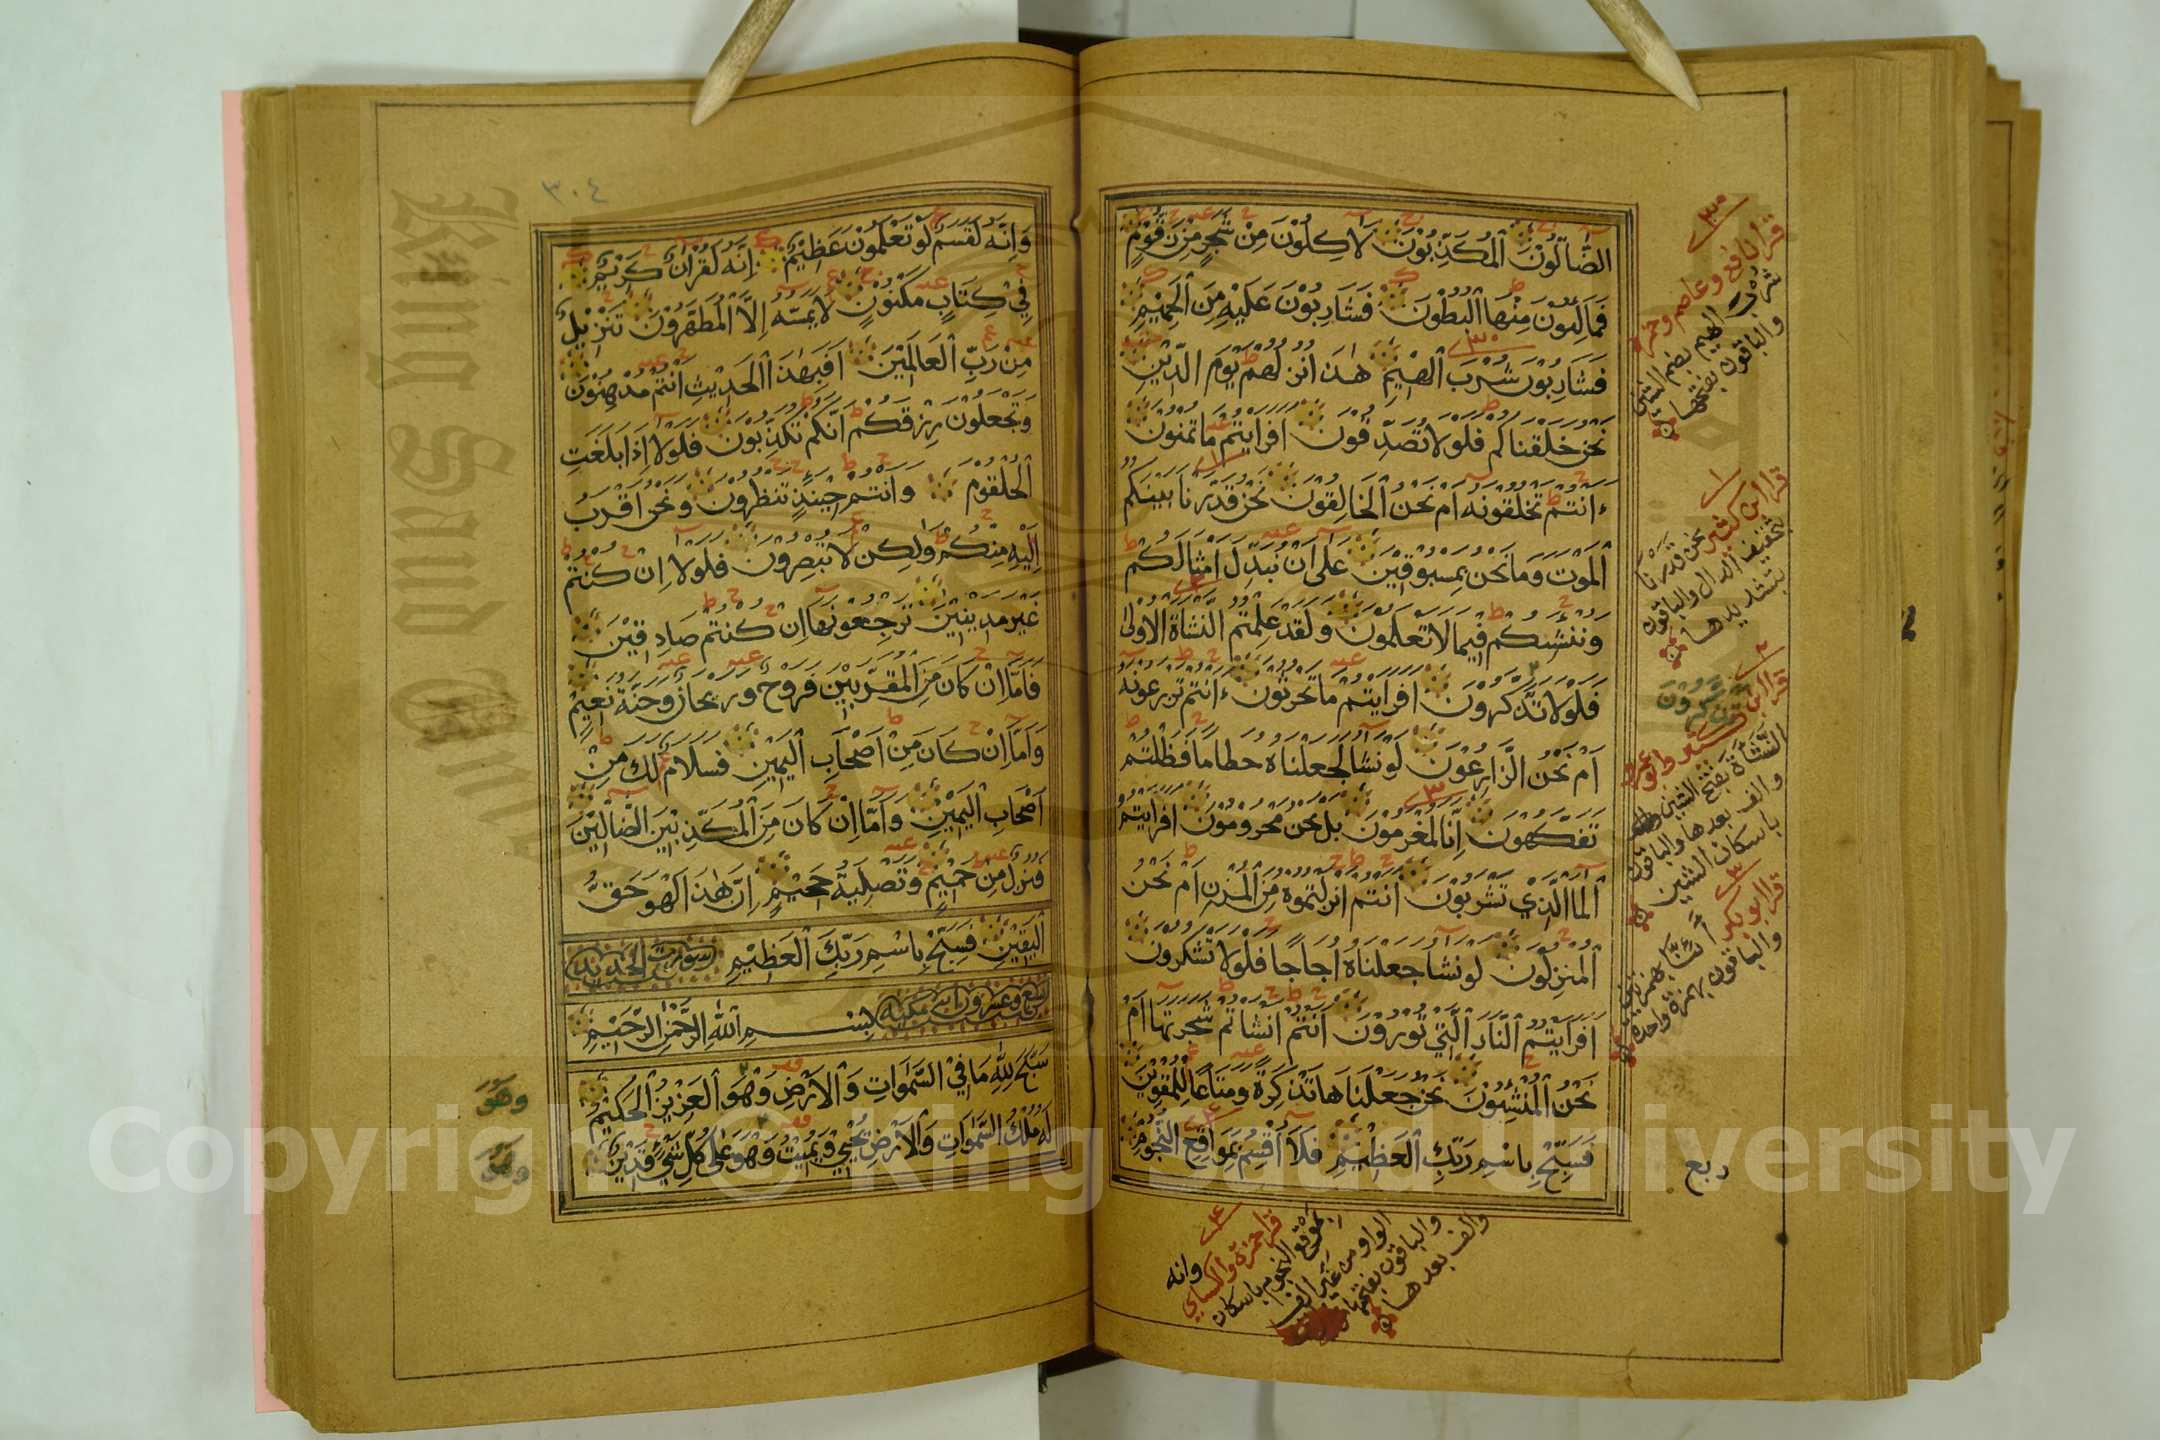 الضَّآلُّونَ الْمُكَذِّبُوْنَ لَاٰكِلُوْنَ مِنْ شَجَرٍ مِنْ زَقُّوْمٍ
فَمَالِئُوْنَ مِنْهَا الْبُطُوْنَ فَشَارِبُوْنَ عَلَيْهِ مِنَ الْحَمِيْمِ
فَشَارِبُوْنَ شُرْبَ الْهِيْمِ هٰذَا نُزُلُهُمْ يَوْمَ الدِّيْنِ
نَحْنُ خَلَقْنَاكُمْ فَلَوْلَا تُصَدِّقُوْنَ اَفَرَاَيْتُمْ مَا تُمْنُوْنَ
ءَاَنْتُمْ تَخْلُقُوْنَهُ اَمْ نَحْنُ الْخَالِقُوْنَ نَحْنُ قَدَّرْنَا بَيْنَكُمُ
الْمَوْتَ وَمَا نَحْنُ بِمَسْبُوْقِيْنَ عَلٰى اَنْ نُبَدِّلَ اَمْثَالَكُمْ
وَنُنْشِئَكُمْ فِيْمَا لَا تَعْلَمُوْنَ وَلَقَدْ عَلِمْتُمُ النَّشْاَةَ الْاُوْلٰى
فَلَوْلَا تَذَّكَّرُوْنَ اَفَرَاَيْتُمْ مَا تَحْرُثُوْنَ ءَاَنْتُمْ تَزْرَعُوْنَهُ
اَمْ نَحْنُ الزَّارِعُوْنَ لَوْ نَشَآءُ لَجَعَلْنَاهُ حُطَامًا فَظَلْتُمْ
تَفَكَّهُوْنَ اِنَّا لَمُغْرَمُوْنَ بَلْ نَحْنُ مَحْرُوْمُوْنَ اَفَرَاَيْتُمُ
الْمَآءَ الَّذِيْ تَشْرَبُوْنَ ءَاَنْتُمْ اَنْزَلْتُمُوْهُ مِنَ الْمُزْنِ اَمْ نَحْنُ
الْمُنْزِلُوْنَ لَوْ نَشَآءُ جَعَلْنَاهُ اُجَاجًا فَلَوْلَا تَشْكُرُوْنَ
اَفَرَاَيْتُمُ النَّارَ الَّتِيْ تُوْرُوْنَ ءَاَنْتُمْ اَنْشَاْتُمْ شَجَرَتَهَا اَمْ
نَحْنُ الْمُنْشِئُوْنَ نَحْنُ جَعَلْنَاهَا تَذْكِرَةً وَمَتَاعًا لِلْمُقْوِيْنَ
فَسَبِّحْ بِاسْمِ رَبِّكَ الْعَظِيْمِ فَلَآ اُقْسِمُ بِمَوَاقِعِ النُّجُوْمِ
وانه
٣
قرا نافع وعاصم وحمزة
شرب الهيم بضم الشين
والباقون بفتحها
١
قرا ابن كثير نحن قدرنا
بتخفيف الدال والباقون
بتشديدها
٢
تَذَّكَّرُوْنَ
قرا ابن كثير وابو عمرو
النَّشَآءَة بفتح الشين
والف بعدها والباقون
باسكان الشين
٣
قرا ابو بكر أئنا بهمزتين
والباقون بهمزة واحدة
ربع
٤
قرا حمزة والكسايي
بموقع النجوم باسكان
الواو من غير الف
والباقون بفتحها
والف بعدها
٣٠٤
وَاِنَّهُ لَقَسَمٌ لَوْ تَعْلَمُوْنَ عَظِيْمٌ اِنَّهُ لَقُرْاٰنٌ كَرِيْمٌ
فِيْ كِتَابٍ مَكْنُوْنٍ لَا يَمَسُّهُ اِلَّا الْمُطَهَّرُوْنَ تَنْزِيْلٌ
مِنْ رَبِّ الْعَالَمِيْنَ اَفَبِهٰذَا الْحَدِيْثِ اَنْتُمْ مُدْهِنُوْنَ
وَتَجْعَلُوْنَ رِزْقَكُمْ اَنَّكُمْ تُكَذِّبُوْنَ فَلَوْلَآ اِذَا بَلَغَتِ
الْحُلْقُوْمَ وَاَنْتُمْ حِيْنَئِذٍ تَنْظُرُوْنَ وَنَحْنُ اَقْرَبُ
اِلَيْهِ مِنْكُمْ وَلٰكِنْ لَا تُبْصِرُوْنَ فَلَوْلَآ اِنْ كُنْتُمْ
غَيْرَ مَدِيْنِيْنَ تَرْجِعُوْنَهَا اِنْ كُنْتُمْ صَادِقِيْنَ
فَاَمَّآ اِنْ كَانَ مِنَ الْمُقَرَّبِيْنَ فَرَوْحٌ وَرَيْحَانٌ وَجَنَّةُ نَعِيْمٍ
وَاَمَّآ اِنْ كَانَ مِنْ اَصْحَابِ الْيَمِيْنِ فَسَلَامٌ لَكَ مِنْ
اَصْحَابِ الْيَمِيْنِ وَاَمَّآ اِنْ كَانَ مِنَ الْمُكَذِّبِيْنَ الضَّآلِّيْنَ
فَنُزُلٌ مِنْ حَمِيْمٍ وَتَصْلِيَةُ جَحِيْمٍ اِنَّ هٰذَا لَهُوَ حَقُّ
الْيَقِيْنِ فَسَبِّحْ بِاسْمِ رَبِّكَ الْعَظِيْمِ سورة الحديد
تسع وعشرون اية مكية بِسْمِ اللّٰهِ الرَّحْمٰنِ الرَّحِيْمِ
سَبَّحَ لِلّٰهِ مَا فِي السَّمٰوَاتِ وَالْاَرْضِ وَهُوَ الْعَزِيْزُ الْحَكِيْمُ
لَهُ مُلْكُ السَّمٰوَاتِ وَالْاَرْضِ يُحْيِيْ وَيُمِيْتُ وَهُوَ عَلٰى كُلِّ شَيْءٍ قَدِيْرٌ
وَهْوَ
وَهْوَ
King Saud University
Copyright © King Saud University